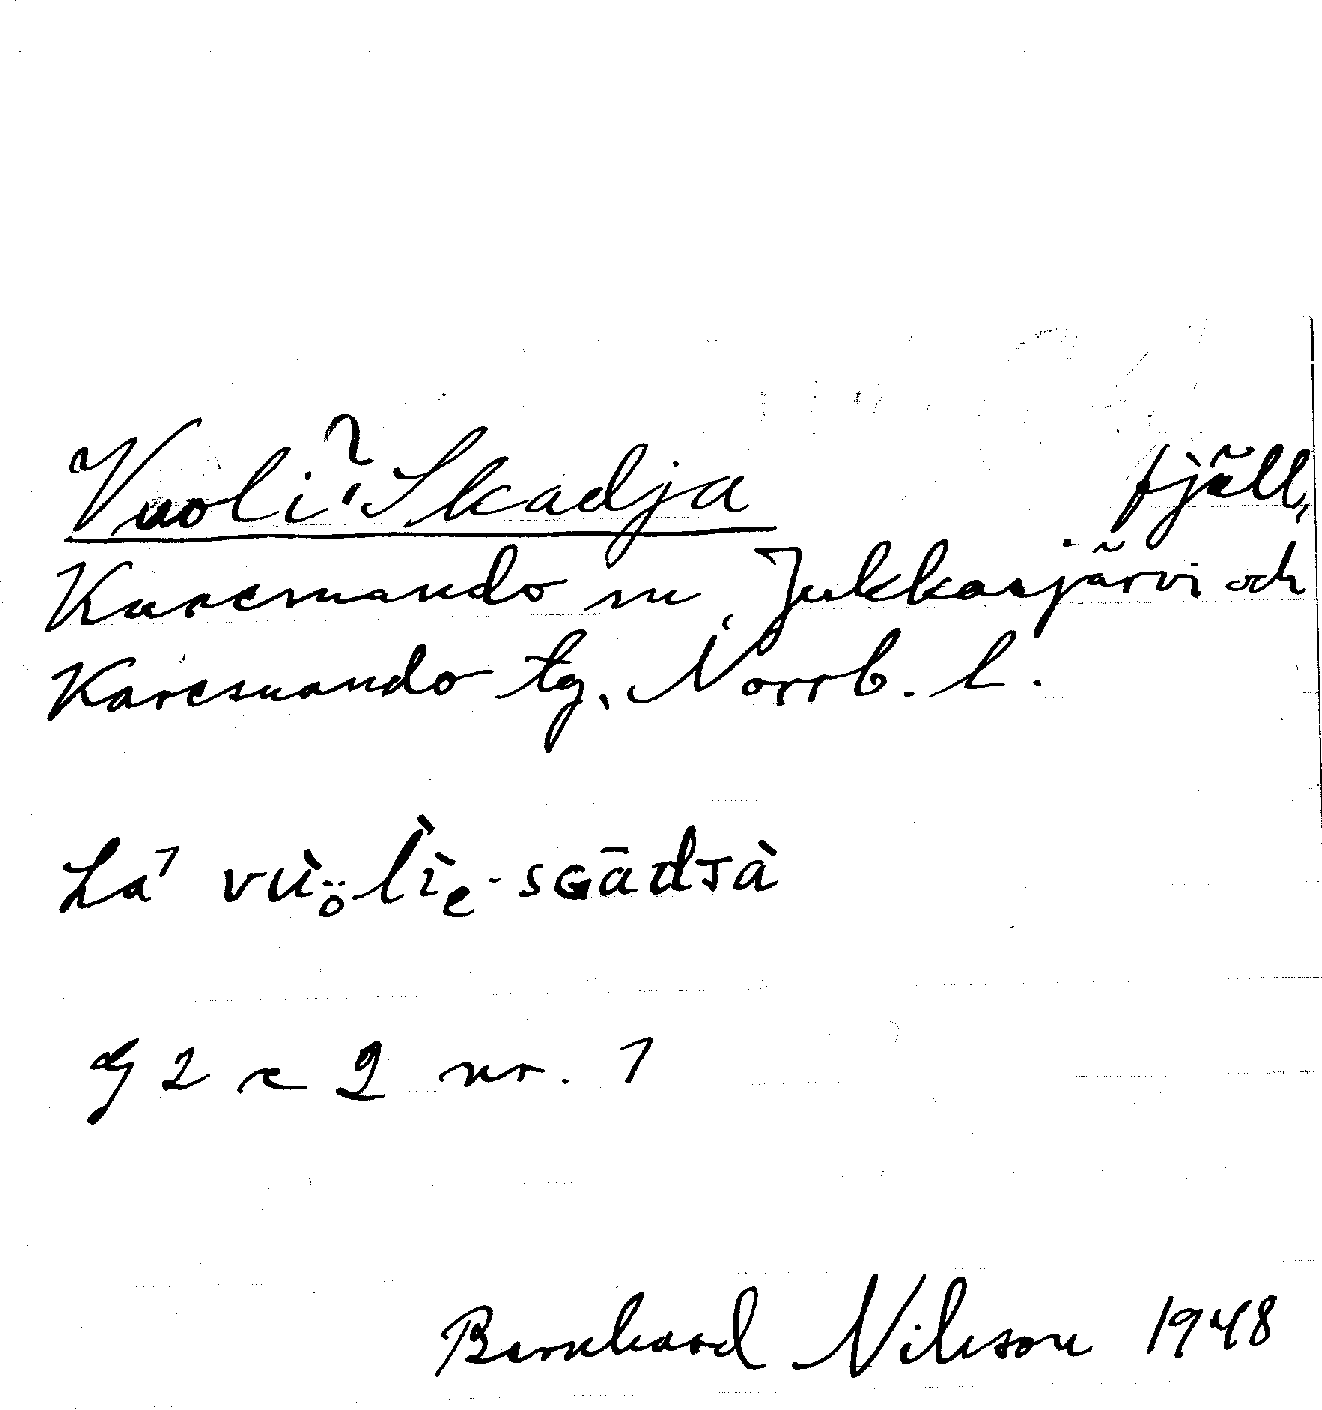 Vuoli? Skadja fjäll,
Karesuando sn Jukkasjärvi och
Karesuando tg, Norrb. l.
La' vu̇̀ö̤lìe-sGādJà
G 2 c 2 nr. 1
Bernhard Nilsson 1948